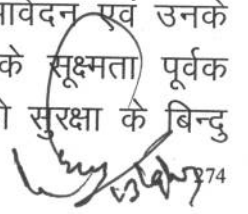 आवेदन एवं उनके
के सूक्ष्मता पूर्वक
सुरक्षा के बिन्दु
274